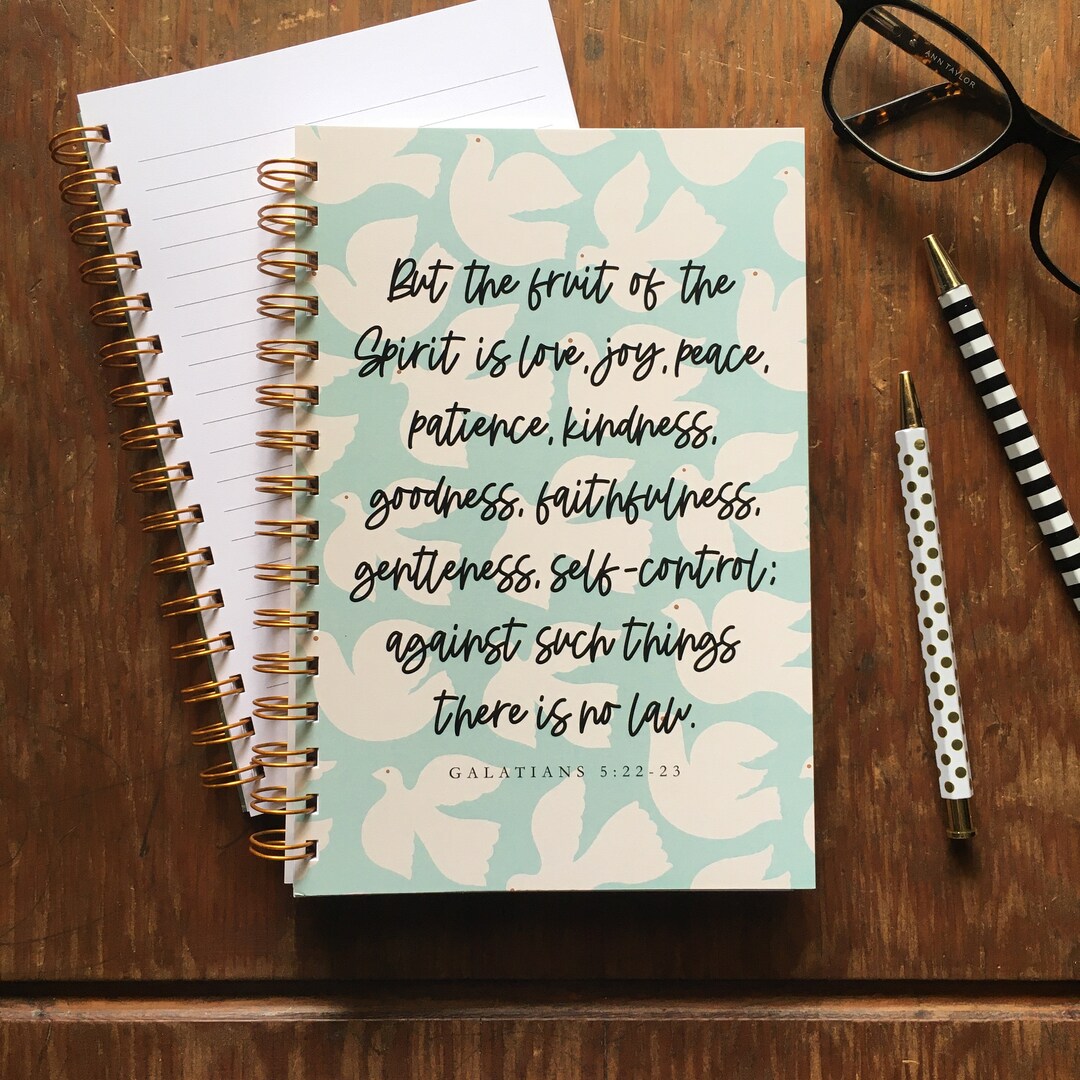 ANN TAYLOR
But the fruit of the
Spirit is love, joy, peace,
patience, kindness,
goodness, faithfulness,
gentleness, self-control;
against such things
there is no law.
GALATIANS 5:22-23